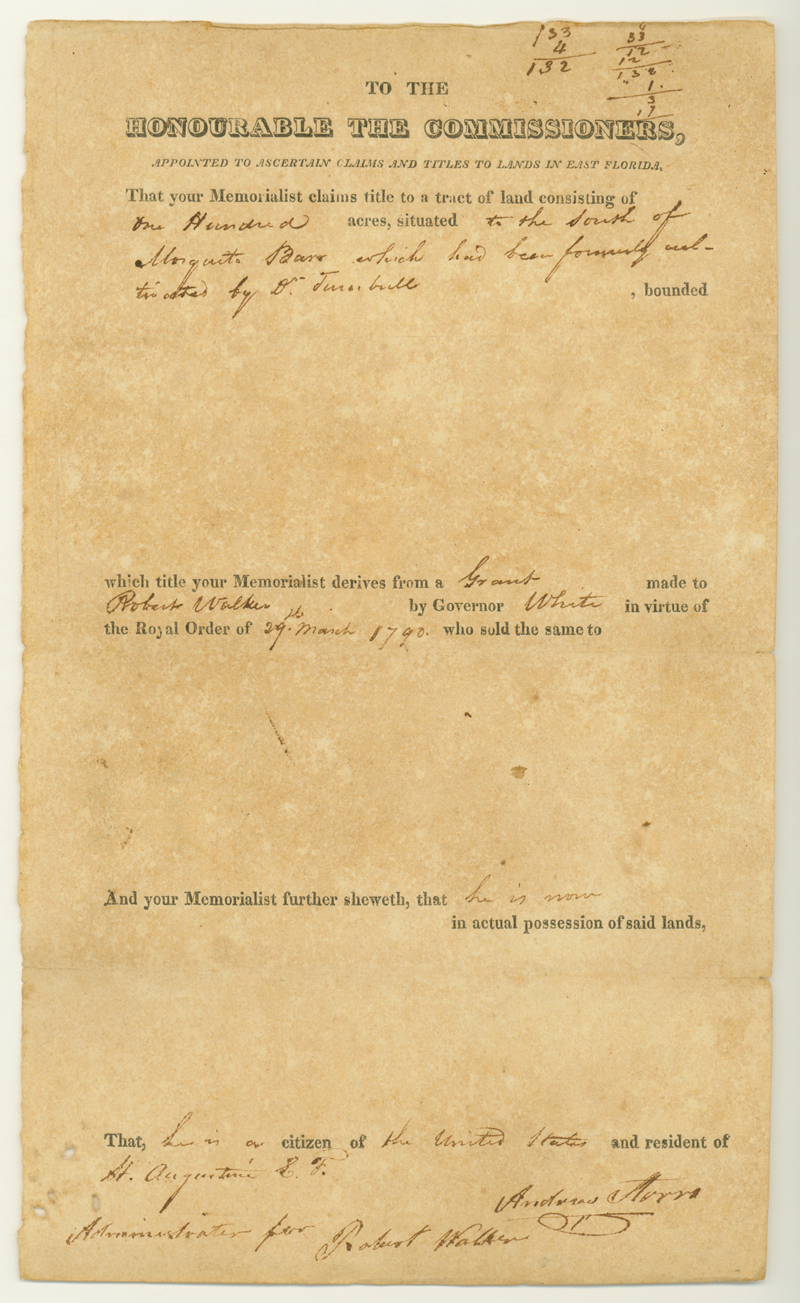 133
4
132
33
12
12
132
1
3
17
TO THE
HONOURABLE THE COMMISSIONERS,
APPOINTED TO ASCERTAIN CLAIMS AND TITLES TO LANDS IN EAST FLORIDA,
That your Memorialist claims title to a tract of land consisting of
One Hundred acres, situated to the South of
Morquito Barr which had been formerly cul-
tivated by Dr. Turnbull , bounded
which title your Memorialist derives from a Grant made to
Robert Walker by Governor White in virtue of
the Royal Order of 29th March 1790. who sold the same to
And your Memorialist further sheweth, that he is now
in actual possession of said lands,
That, he is a citizen of the United States and resident of
St. Augustine E. F.
Andrew Storrs
Administrater for Robert Walker